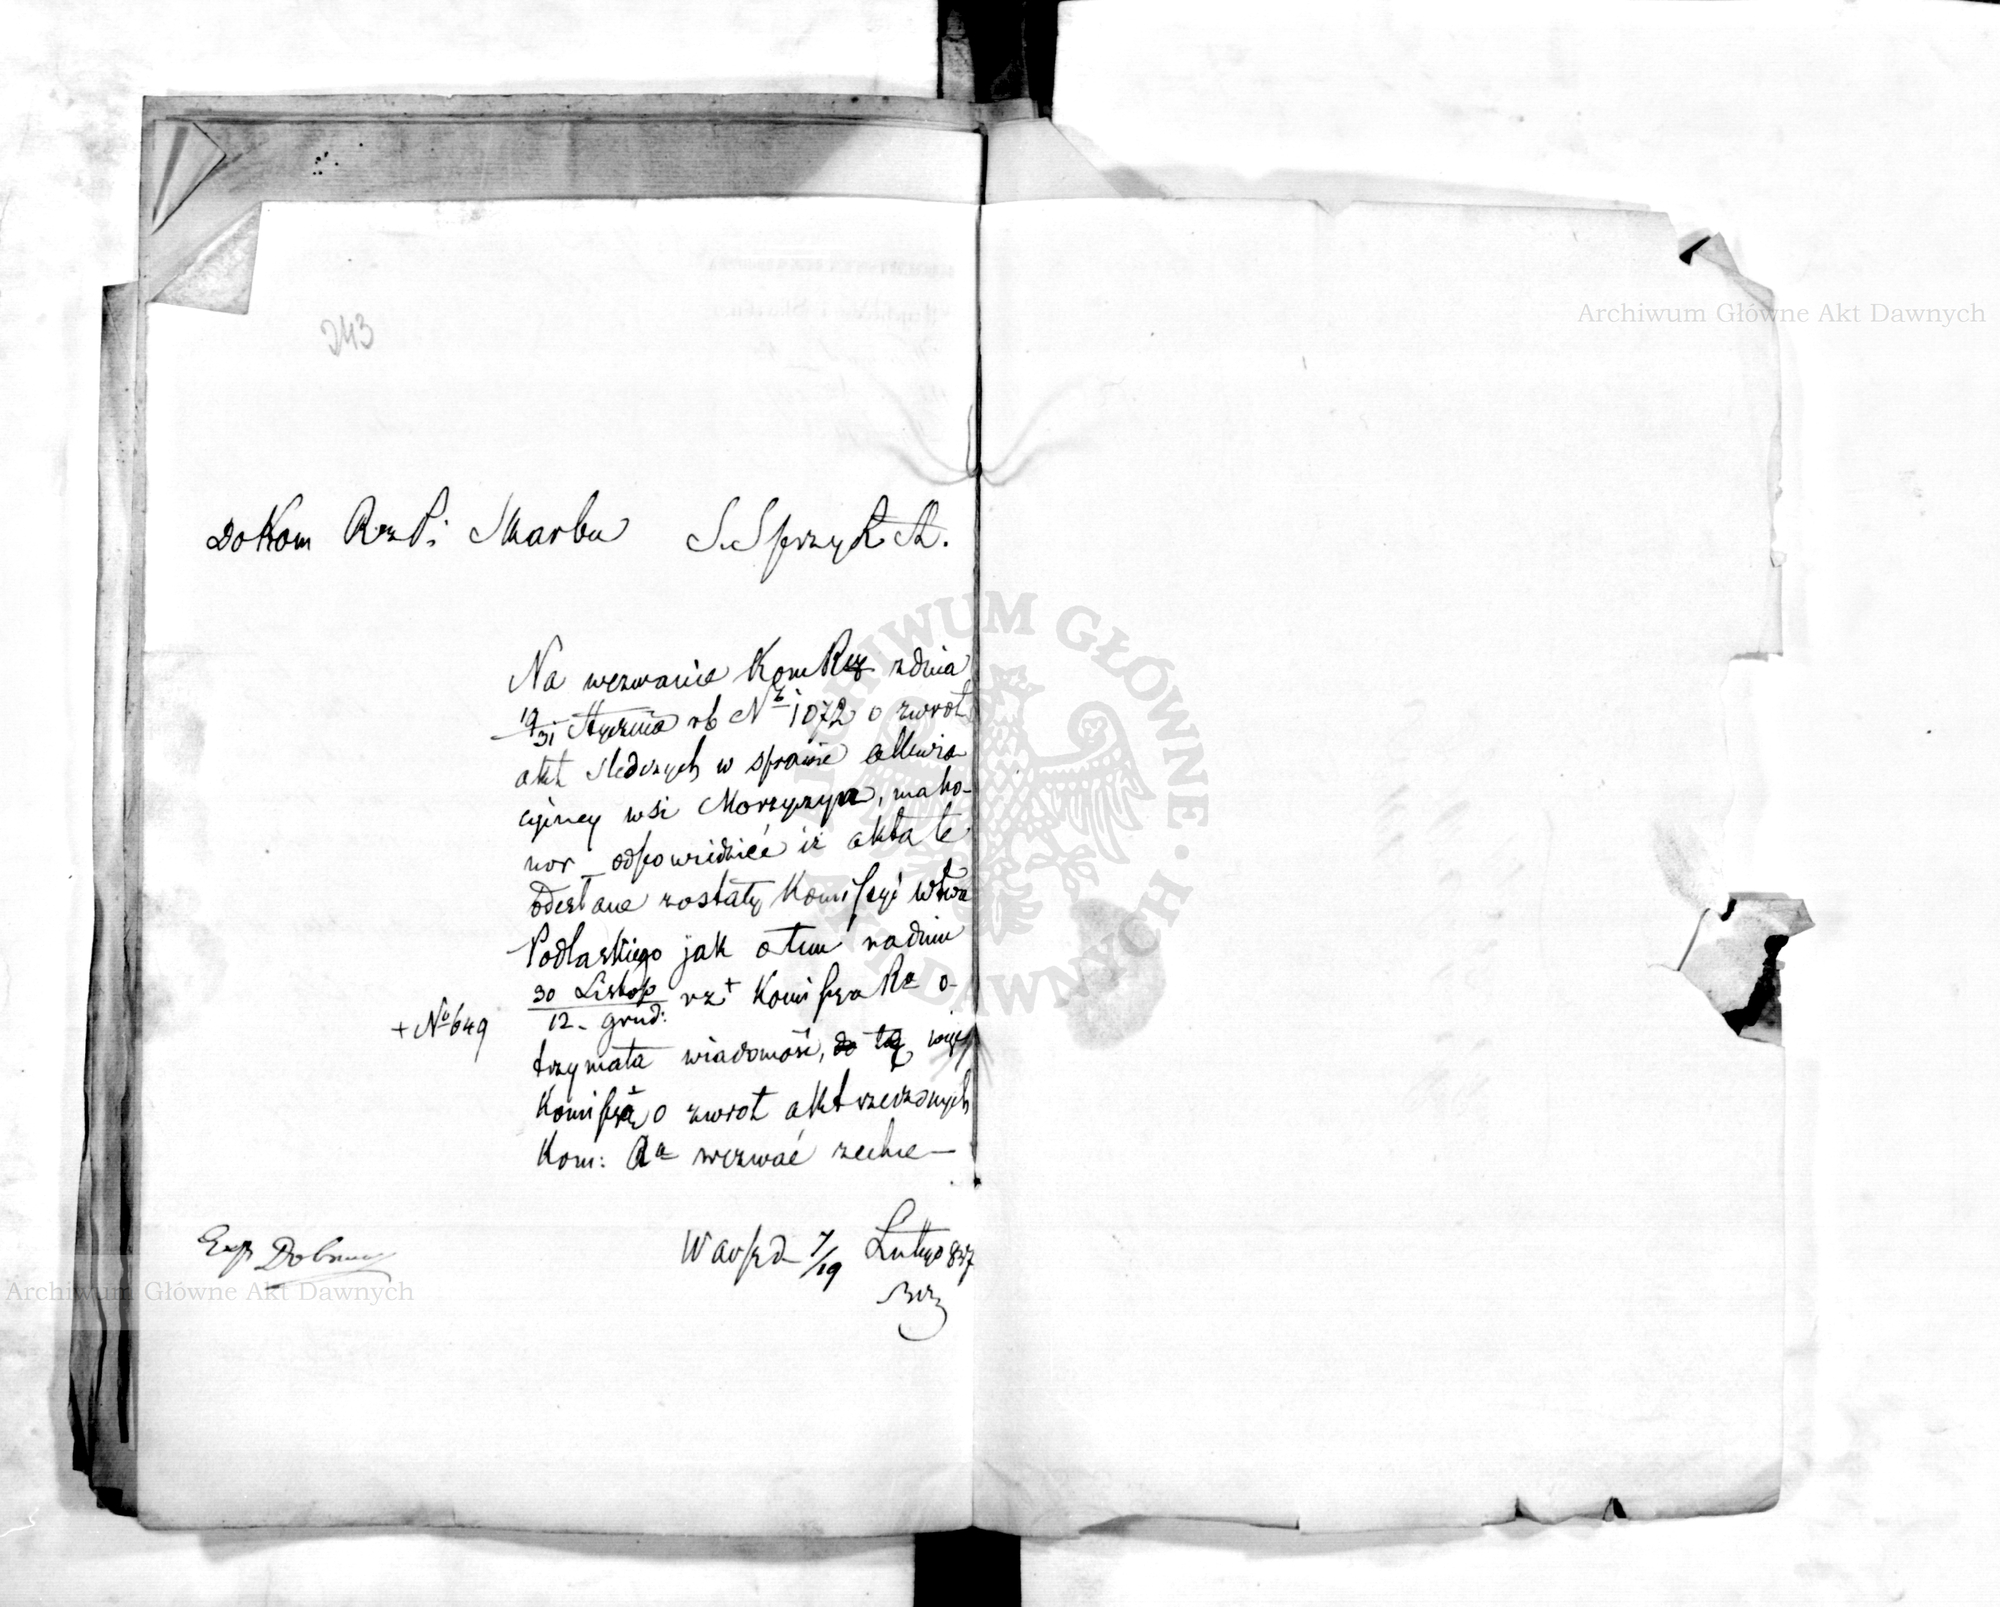 243
Do Kom Rz P: Skarbu S. Sprzyk Sk.
Na wezwanie Kom Rz z dnia
19/31 Stycznia rb No 1072 o zwrot
akt śledczych w sprawie allewia
cyjney wsi Morzyczyn, ma ho-
nor odpowiedzieć iż akta te
odesłane zostały Komissyi Wtwa
Podlaskiego jak o tem na dniu
30 Listop
12 grud: rz + Komissya Ra o-
+ No 649
trzymała wiadomość, do tą więc
Komissyą o zwrot akt rzeczonych
Kom: Ra wezwać zechce —
Warsz d 7/19 Lutego 837
Exp
Archiwum Główne Akt Dawnych
Archiwum Główne Akt Dawnych
ARCHIWUM GŁÓWNE AKT DAWNYCH